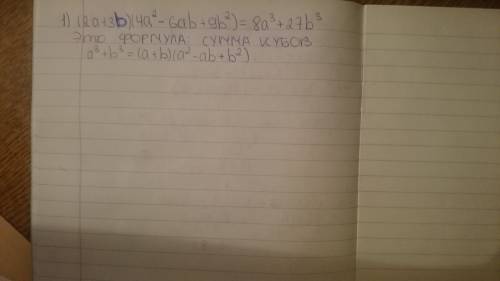 1) (2a+3b)(4a²-6ab+9b²)=8a³+27b³
Это ФОРМУЛА: СУММА КУБОВ
a³+b³=(a+b)(a²-ab+b²)